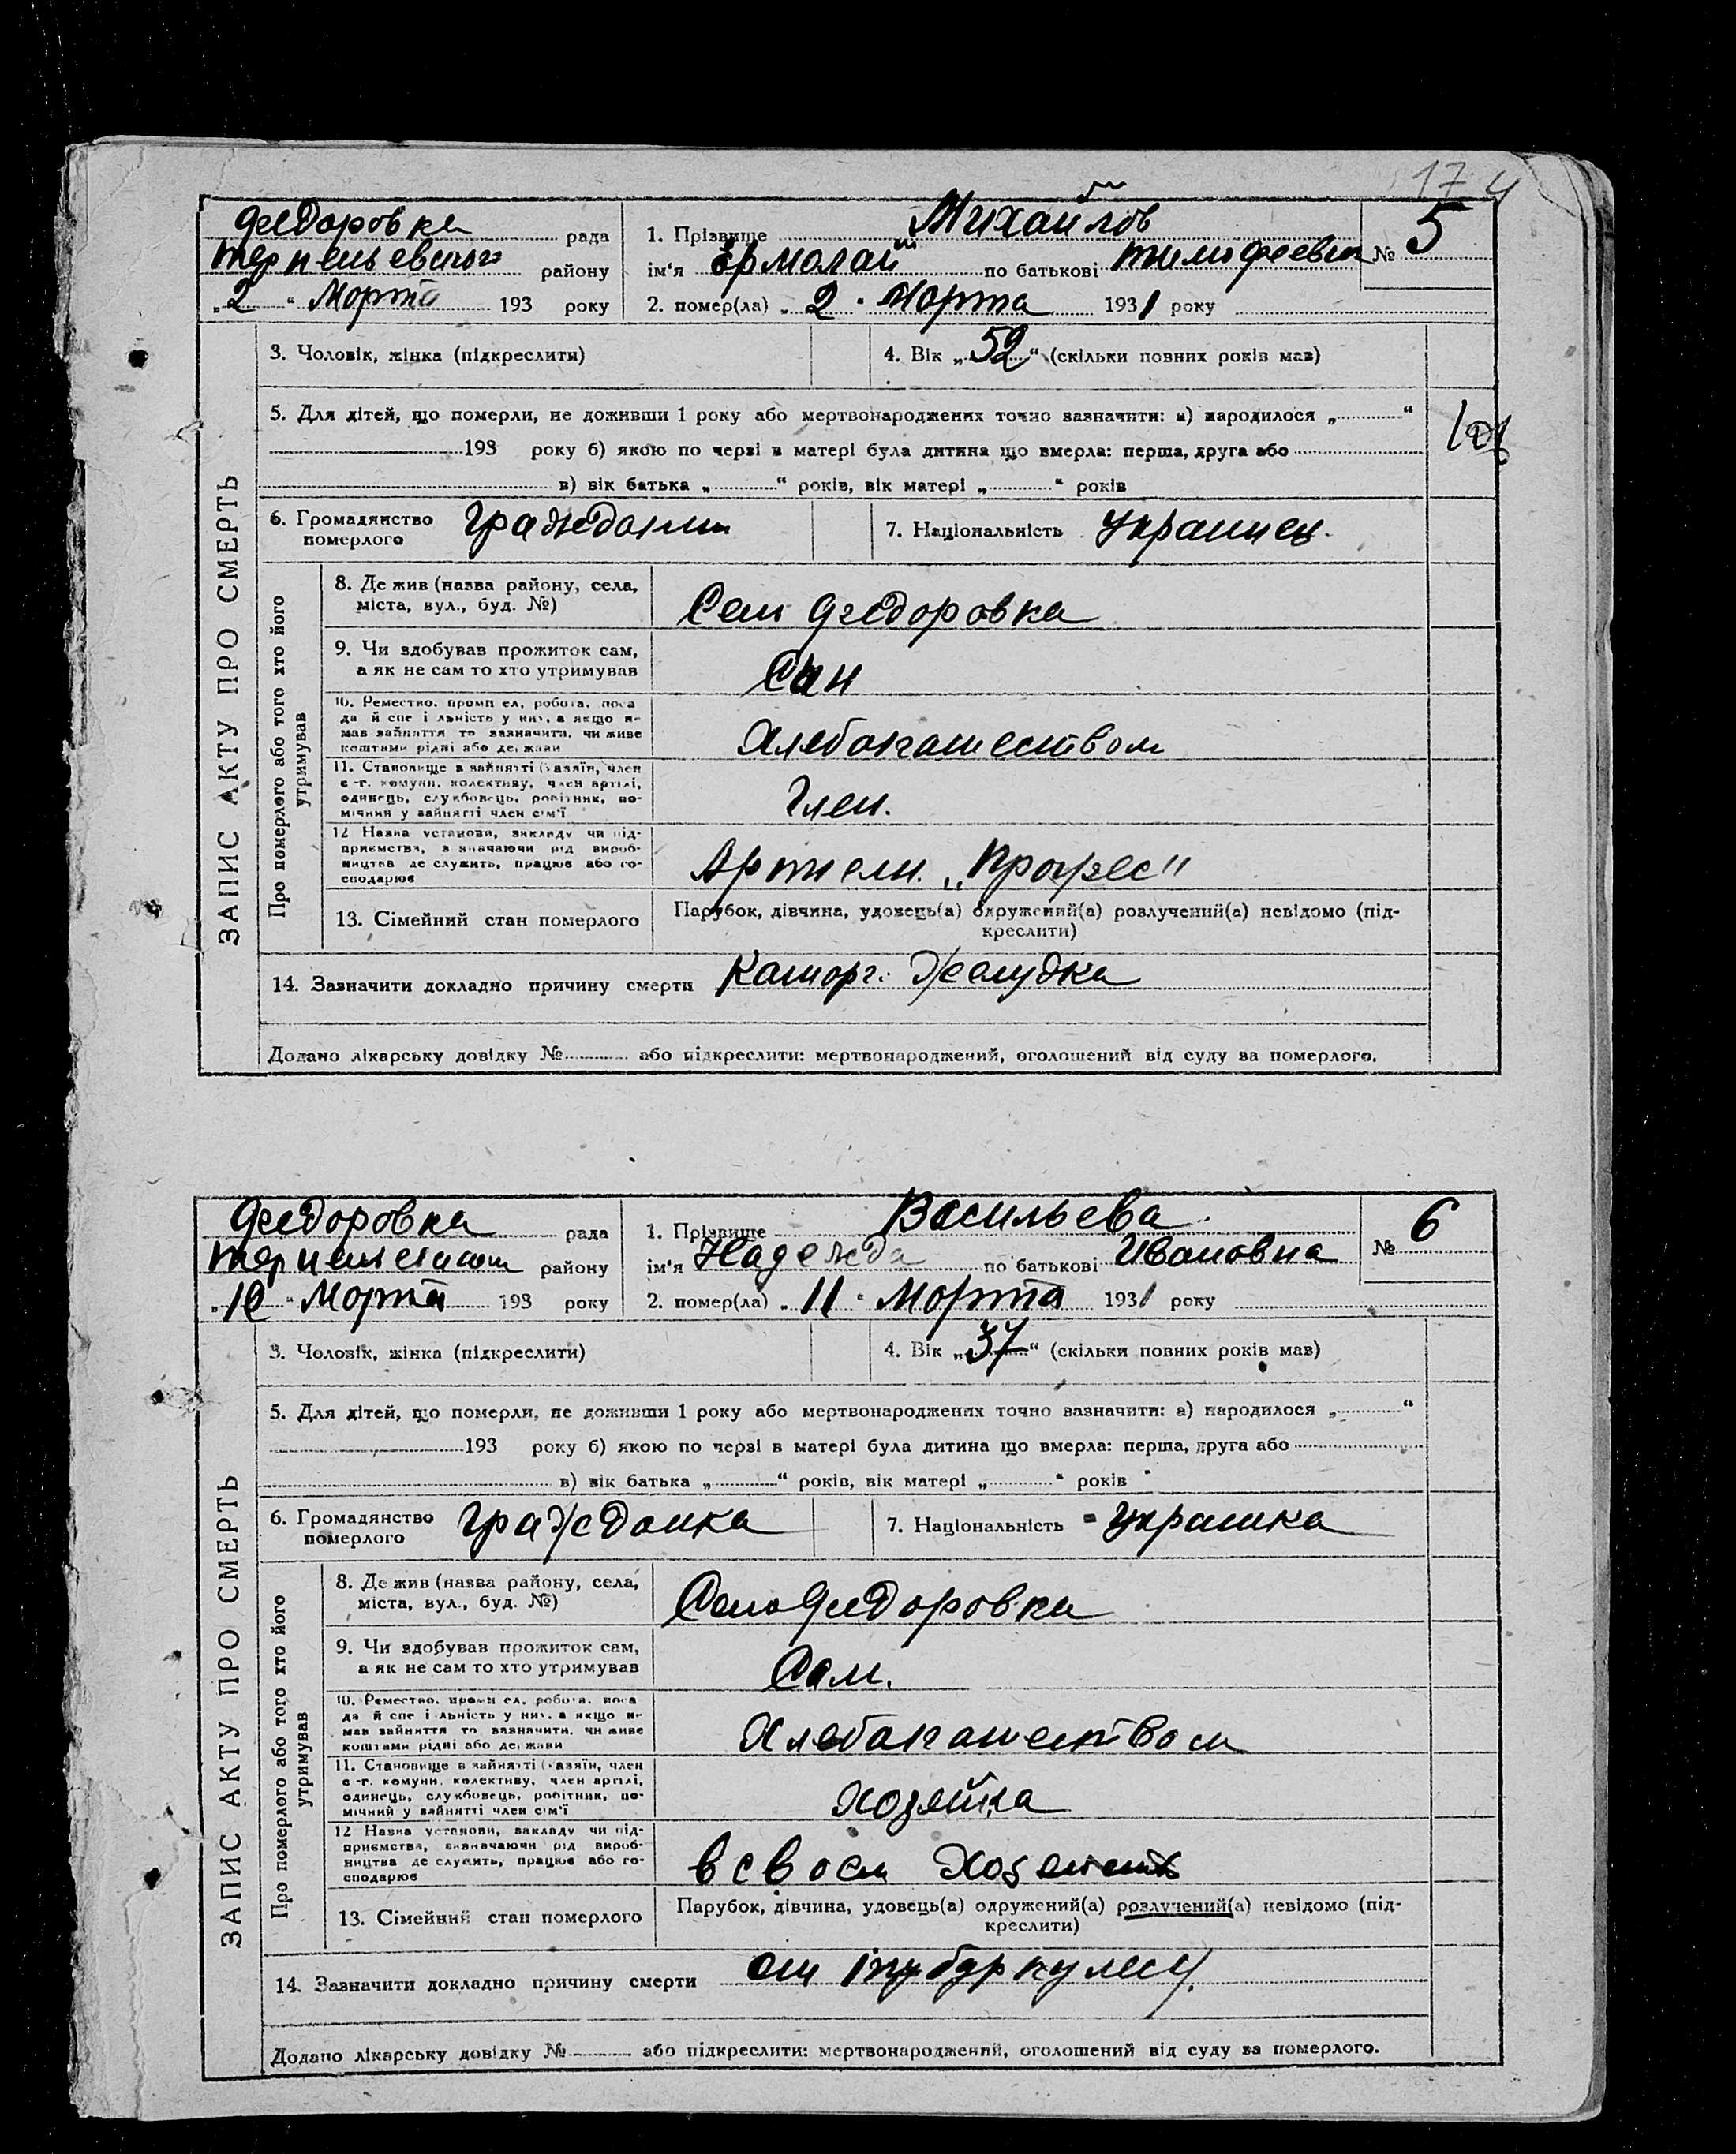 174
Федоровка рада
Терпеньевского району
„2“ Марта 193 року
1. Прізвище Михайлов
ім'я Ермолай по батькові Тимофеевич
2. помер(ла) „2“ Марта 1931 року
№ 5
ЗАПИС АКТУ ПРО СМЕРТЬ
3. Чоловік, жінка (підкреслити)
4. Вік „52“ (скільки повних років мав)
5. Для дітей, що померли, не доживши 1 року або мертвонароджених точно зазначити: а) народилося „ “
193 року б) якою по черзі в матері була дитина що вмерла: перша, друга або
в) вік батька „ “ років, вік матері „ “ років
6. Громадянство померлого Гражданин
7. Національність Украинец
Про померлого або того хто його утримував
8. Де жив (назва району, села,
міста, вул., буд. №)
Село Федоровка
9. Чи здобував прожиток сам,
а як не сам то хто утримував
10. Ремество, промисел, робота, поса
да й спеціяльність у них, а якщо не
мав зайняття то зазначити, чи живе
коштами рідні або держави
Хлебопашеством
11. Становище в зайнятті (хазяїн, член
с.-г. комуни, колективу, член артілі,
одинець, службовець, робітник, по-
мічний у зайнятті член сім'ї
Член.
12 Назва установи, закладу чи під-
приємства, зазначаючи рід вироб-
ництва де служить, працює або го-
сподарює
Артели „Прогрес"
13. Сімейний стан померлого
Парубок, дівчина, удовець(а) одружений(а) розлучений(а) невідомо (під-
креслити)
14. Зазначити докладно причину смерти Катарг. Желудка
Додано лікарську довідку № або підкреслити: мертвонароджений, оголошений від суду за померлого.
Федоровка рада
району
Марта 193 року
1. Прізвище Васильева
ім'я Надежда по батькові Ивановна
2. помер(ла) „11“ Марта 1931 року
№ 6
ЗАПИС АКТУ ПРО СМЕРТЬ
3. Чоловік, жінка (підкреслити)
4. Вік „37“ (скільки повних років мав)
5. Для дітей, що померли, не доживши 1 року або мертвонароджених точно зазначити: а) народилося „ “
193 року б) якою по черзі в матері була дитина що вмерла: перша, друга або
в) вік батька „ “ років, вік матері „ “ років
6. Громадянство померлого Гражданка
7. Національність Украинка
Про померлого або того хто його утримував
8. Де жив (назва району, села,
міста, вул., буд. №)
Село Федоровка
9. Чи здобував прожиток сам,
а як не сам то хто утримував
Сам.
10. Ремество, промисел, робота, поса
да й спеціяльність у них, а якщо не
мав зайняття то зазначити, чи живе
коштами рідні або держави
Хлебопашеством
11. Становище в зайнятті (хазяїн, член
с.-г. комуни, колективу, член артілі,
одинець, службовець, робітник, по-
мічний у зайнятті член сім'ї
Хозяйка
12 Назва установи, закладу чи під-
приємства, зазначаючи рід вироб-
ництва де служить, працює або го-
сподарює
в своем
13. Сімейний стан померлого
Парубок, дівчина, удовець(а) одружений(а) розлучений(а) невідомо (під-
креслити)
14. Зазначити докладно причину смерти от туберкулеу
Додано лікарську довідку № або підкреслити: мертвонароджений, оголошений від суду за померлого.